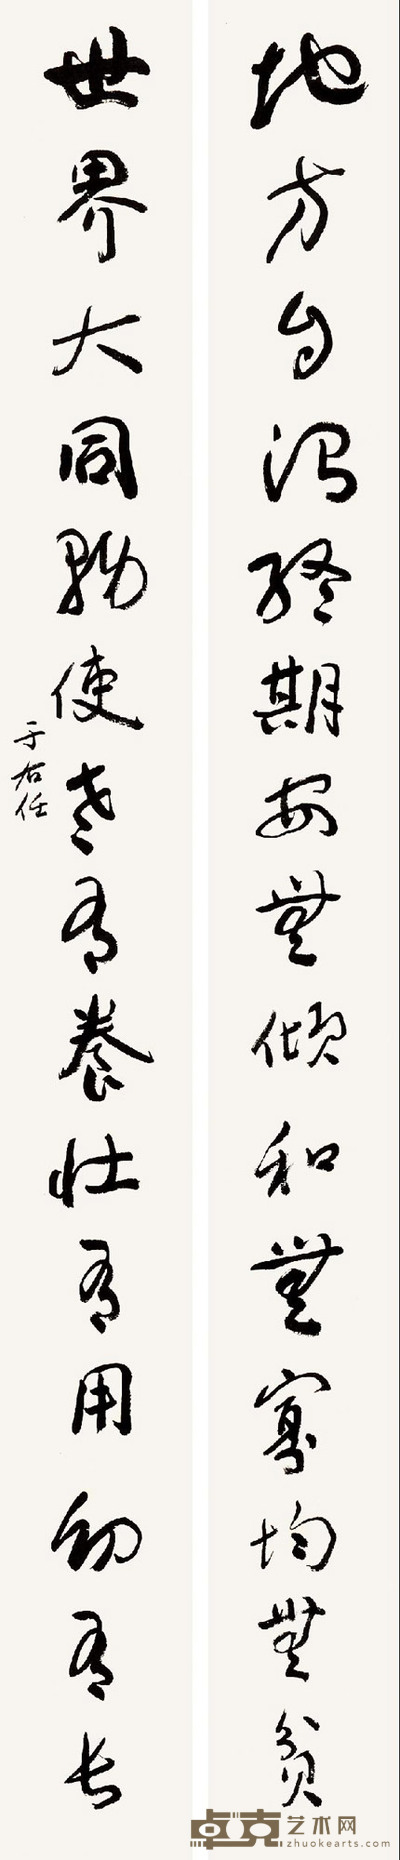 地方自治終期安無傾和無寡均無貧
世界大同勉使老有養壯有用幼有長
于右任
卓克艺术网
zhuokearts.com